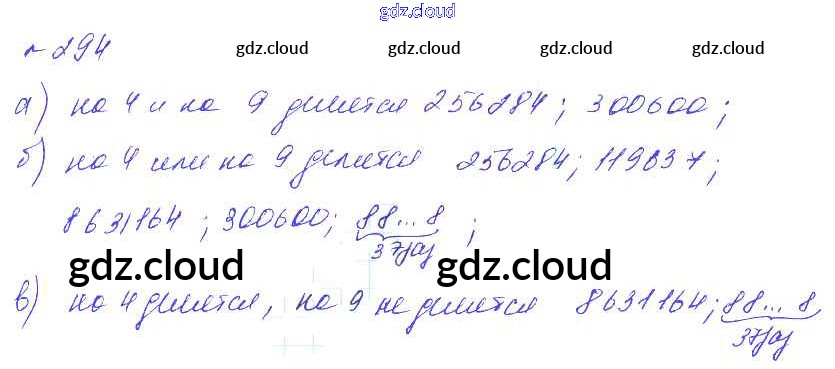 gdz.cloud
№ 294
gdz.cloud gdz.cloud gdz.cloud
а) на 4 и на 9 делятся 256284; 300600;
б) на 4 или на 9 делятся 256284; 119837;
8631164; 300600; 88...8;
37 раз
gdz.cloud gdz.cloud gdz.cloud
в) на 4 делятся, на 9 не делятся 8631164; 88...8
37 раз